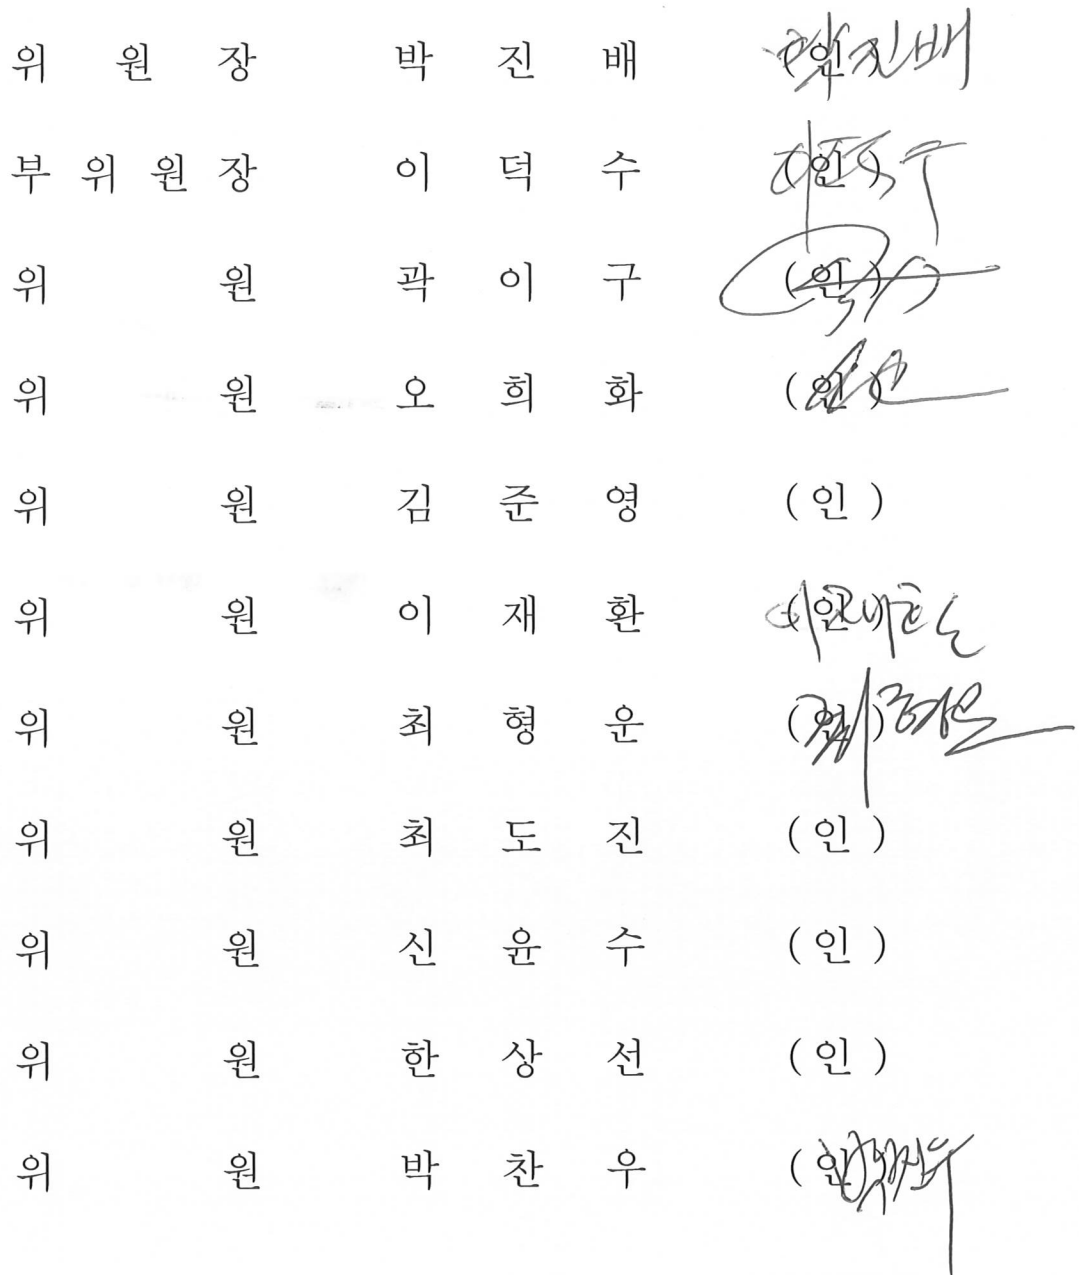 위 원 장 박 진 배 (인) 박진배
부 위 원 장 이 덕 수 (인) 이덕수
위 원 곽 이 구 (인)
위 원 오 희 화 (인)
위 원 김 준 영 (인)
위 원 이 재 환 (인) 이재환
위 원 최 형 운 (인) 최형운
위 원 최 도 진 (인)
위 원 신 윤 수 (인)
위 원 한 상 선 (인)
위 원 박 찬 우 (인) 박찬우